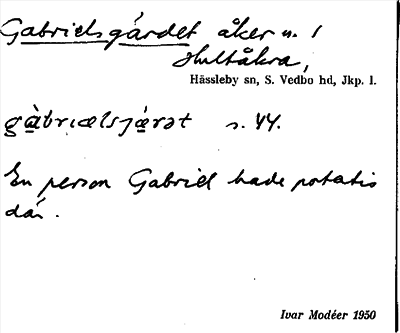 Gabrielsgärdet åker n. 1
Hultåkra,
Hässleby sn, S. Vedbo hd, Jkp. l.
s. 44.
En person Gabriel hade potatis
där.
Ivar Modéer 1950